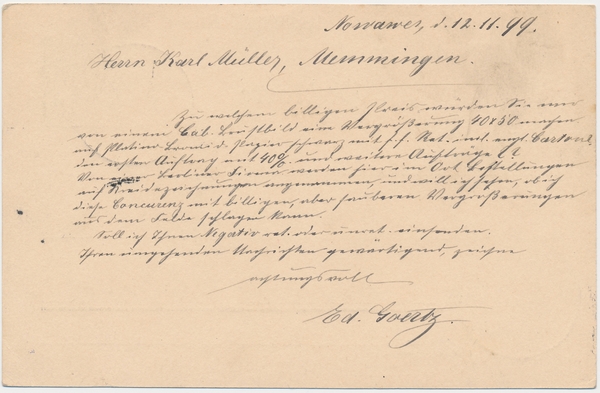 Nowawes, d. 12.11.99.
Herrn Karl Müller, Memmingen.
Zu welchem billigen Preis würden Sie mir
von einem Cab. Brustbild eine Vergrößerung 40x50 machen
auf Platin Bromid. Papier schwarz mit f.f. Ret. incl. engl. Carton,
den ersten Auftrag mit 40% und weitere Aufträge?
Von einer Berliner Firma werden hier im Ort Bestellungen
auf Kreidezeichnungen angenommen, und will ich sehen, ob ich
diese Concurenz mit billigen, aber sauberen Vergrößerungen
aus dem Felde schlagen kann.
Soll ich Ihnen Negativ ret. oder unret. einsenden.
Ihren umgehenden Nachrichten gewärtigend, zeichne
achtungsvoll
Ed. Goertz.